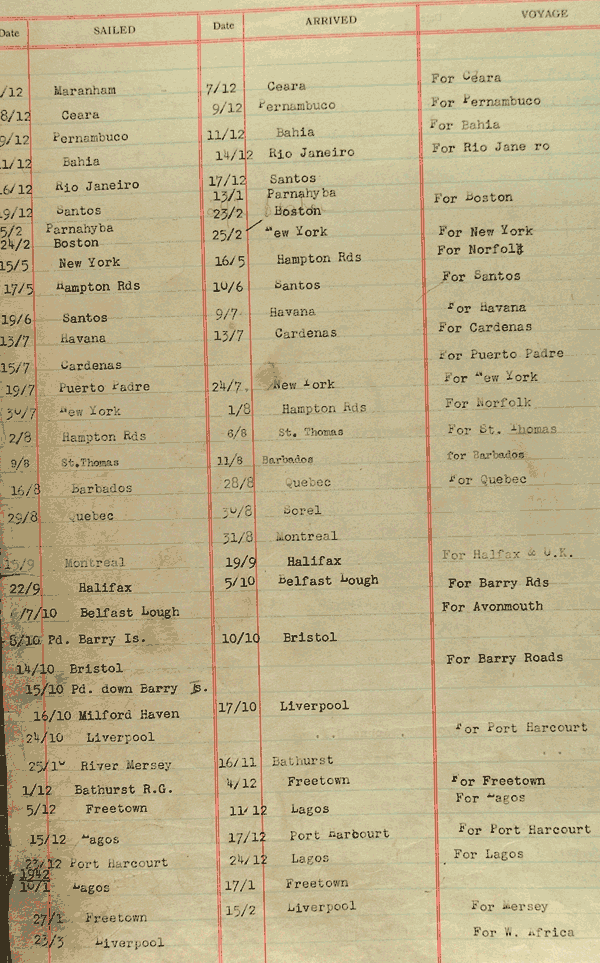 Date SAILED Date ARRIVED VOYAGE
/12 Maranham 7/12 Ceara For Ceara
8/12 Ceara 9/12 Pernambuco For Pernambuco
9/12 Pernambuco 11/12 Bahia For Bahia
11/12 Bahia 14/12 Rio Janeiro For Rio Jane ro
16/12 Rio Janeiro 17/12 Santos
13/1 Parnahyba For Boston
19/12 Santos 23/2 Boston
5/2 Parnahyba 25/2 New York For New York
24/2 Boston For Norfolk
15/5 New York 16/5 Hampton Rds
17/5 Hampton Rds 10/6 Santos For Santos
19/6 Santos 9/7 Havana For Havana
13/7 Havana 13/7 Cardenas For Cardenas
15/7 Cardenas For Puerto Padre
19/7 Puerto Padre 24/7 New York For New York
30/7 New York 1/8 Hampton Rds For Norfolk
2/8 Hampton Rds 6/8 St. Thomas For St. Thomas
9/8 St.Thomas 11/8 Barbados for Barbados
16/8 Barbados 28/8 Quebec For Quebec
29/8 Quebec 30/8 Sorel
31/8 Montreal
15/9 Montreal 19/9 Halifax For Halfax & U.K.
22/9 Halifax 5/10 Belfast Lough For Barry Rds
/7/10 Belfast Lough For Avonmouth
8/10 Pd. Barry Is. 10/10 Bristol
14/10 Bristol For Barry Roads
15/10 Pd. down Barry Is.
16/10 Milford Haven 17/10 Liverpool
24/10 Liverpool For Port Harcourt
25/10 River Mersey 16/11 Bathurst
1/12 Bathurst R.G. 4/12 Freetown For Freetown
5/12 Freetown 11/12 Lagos For Lagos
15/12 Lagos 17/12 Port Harbourt For Port Harcourt
23/12 Port Harcourt 24/12 Lagos For Lagos
1942
10/1 Lagos 17/1 Freetown
27/1 Freetown 15/2 Liverpool For Mersey
23/3 Liverpool For W. Africa